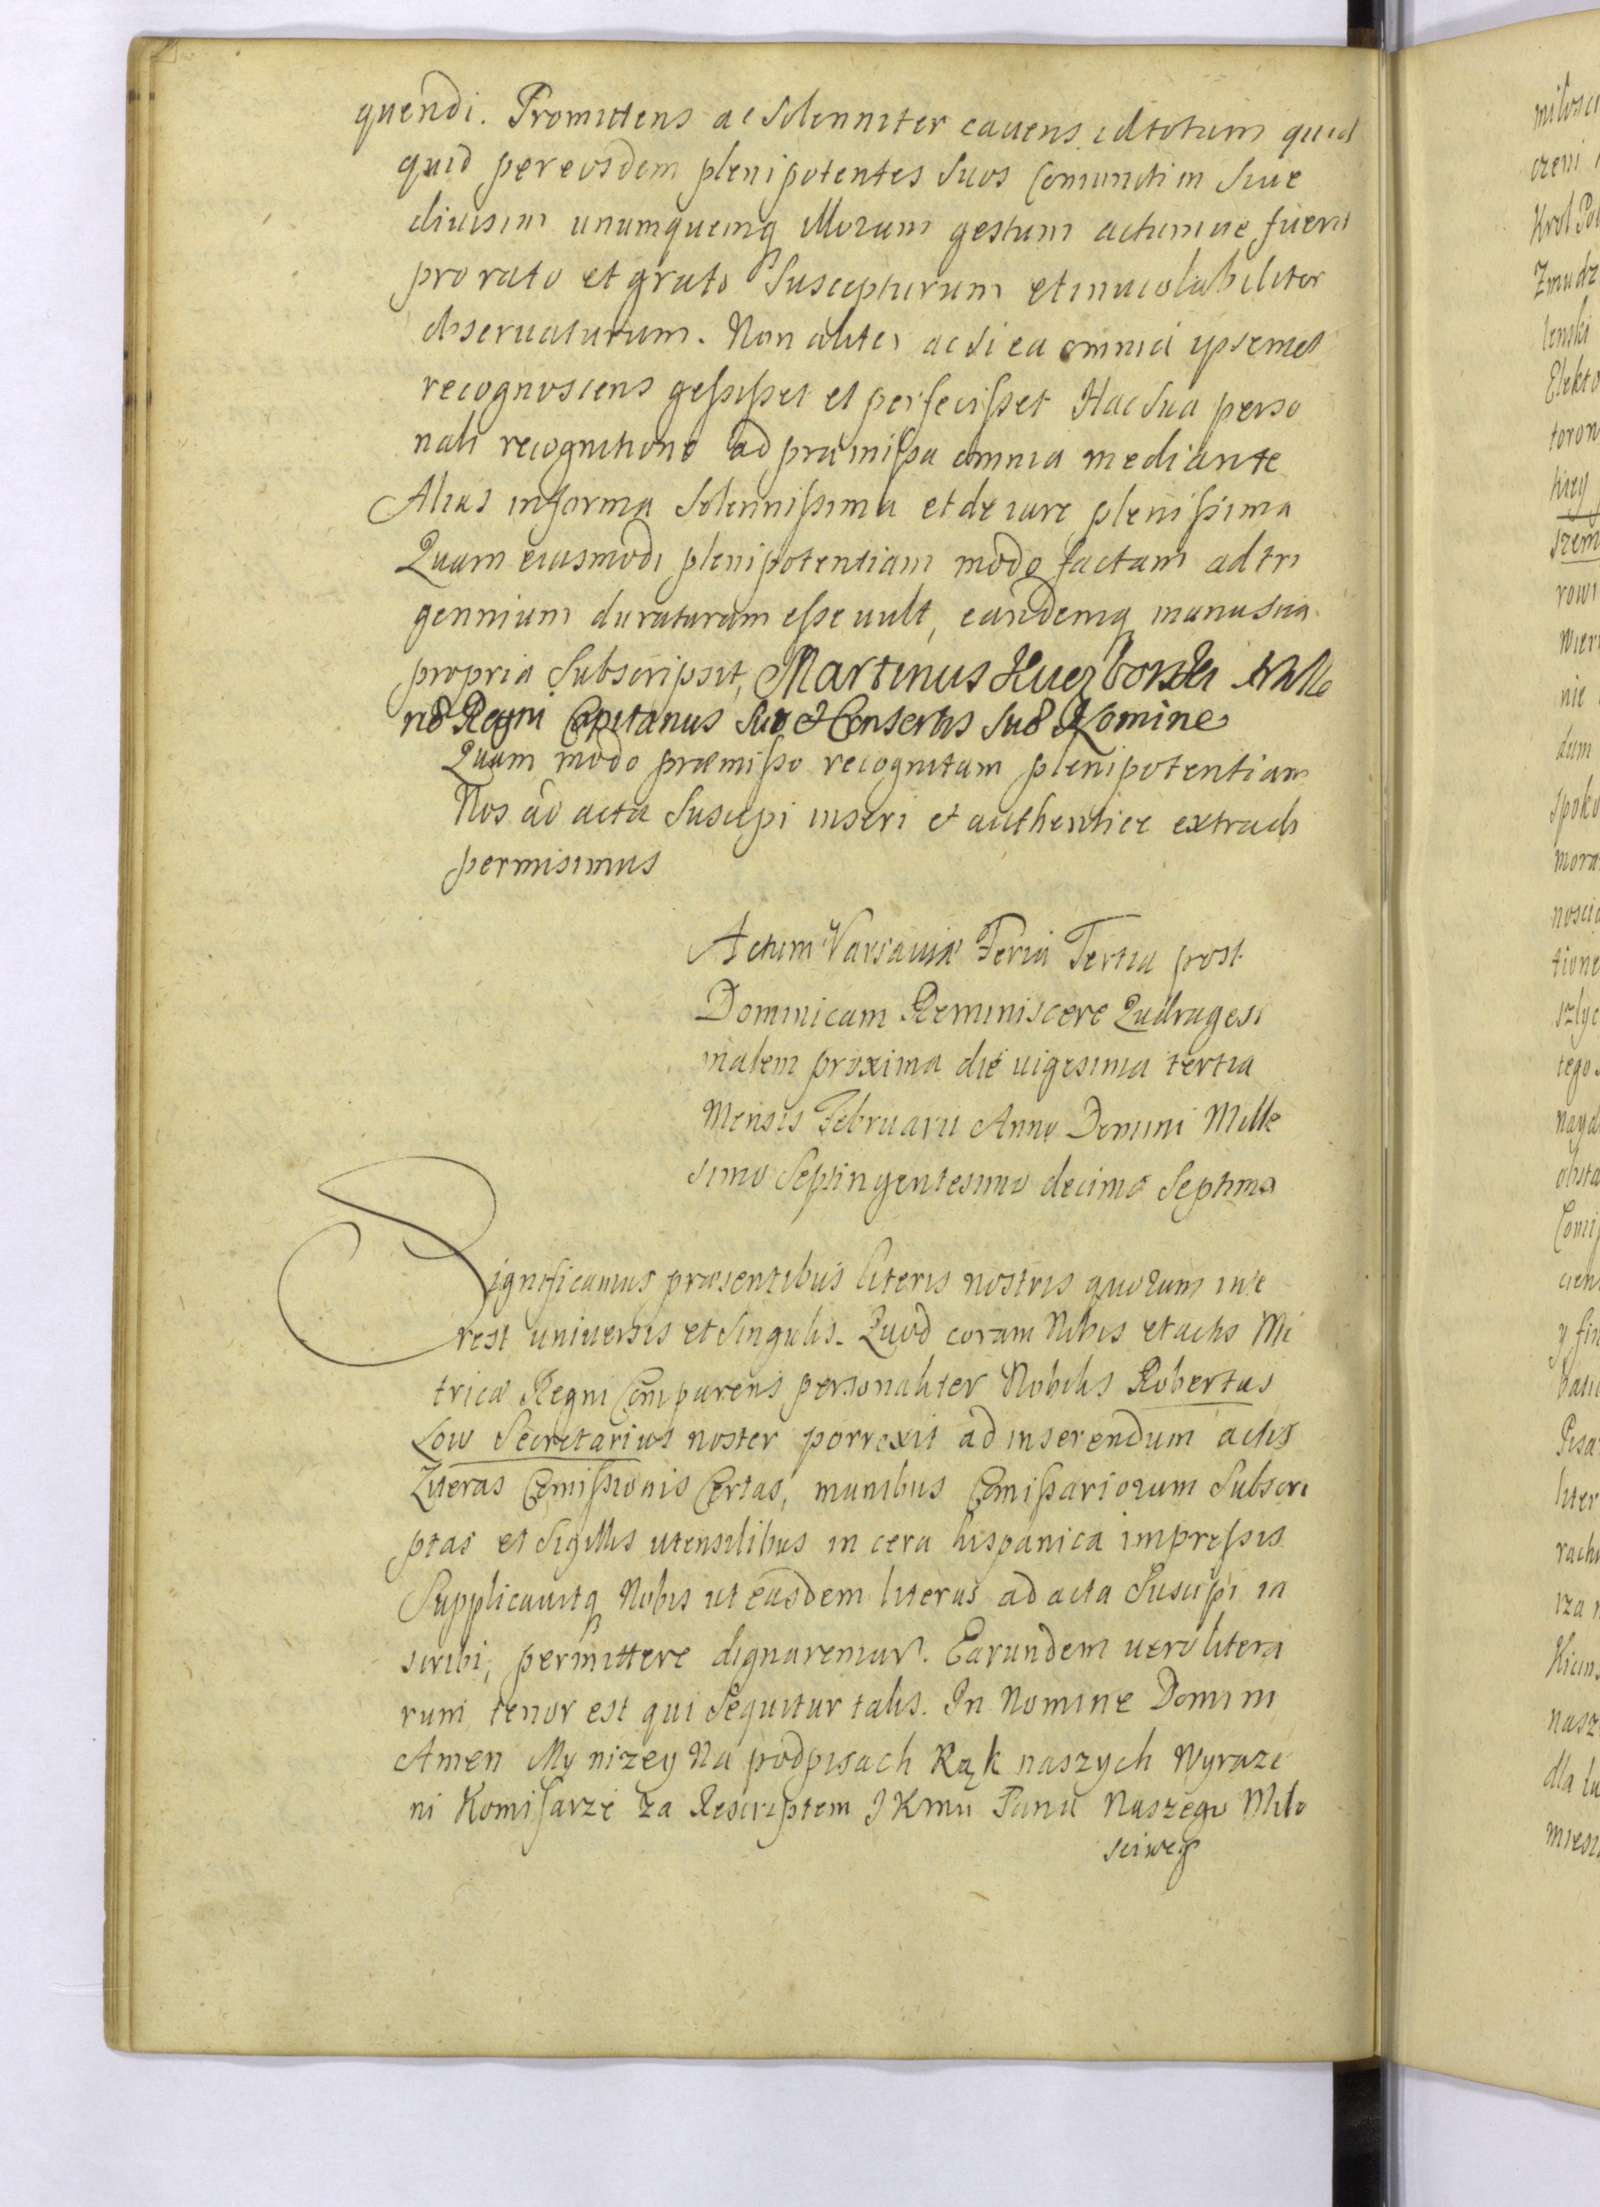 quendi. Promittens ac Solenniter cauens id totum quid
quid per eosdem plenipotentes Suos Coniunctim Siue
diuisim unumquemq illorum gestum actumue fuerit
pro rato et grato Suscepturum et inuiolabiliter
obseruaturum. Non aliter ac si ea omnia ipsemet
recognoscens gessisset et perfecisset Hac Sua perso
nali recognitione ad præmissa omnia mediante
Alias in forma Solennissima et de iure plenissima
Quam eiusmodi plenipotentiam modo factam ad tri
gennium duraturam esse uult, eandemq manu sua
propria Subscripsit, Martinus
Regni Capitanus Suo et Consortis Suo Nomine
Quam modo præmisso recognitam plenipotentiam
Nos ad acta Suscepi inseri et authentice extradi
permisimus
Actum Varsauiæ Feria Tertia post
Dominicam Reminiscere Quadragesi
malem proxima die uigesima tertia
Mensis Februarii Anno Domini Mille
simo Septingentesimo decimo Septimo
Significamus præsentibus literis nostris quorum inte
rest uniuersis et Singulis. Quod coram Nobis et actis Me
tricæ Regni Comparens personaliter Nobilis Robertus
Low Secretarius noster porrexit ad inserendum actis
Literas Comissionis Certas, manibus Comissariorum Subscri
ptas et Sigillis utensilibus in cera hispanica impressis
Supplicauitq Nobis ut easdem literas ad acta Suscipi in
scribi, permittere dignaremur. Earundem uero litera
rum tenor est qui Sequitur talis. In Nomine Domini
Amen My nizey Na podpisach Rąk naszych Wyraze
ni Komissarze za Rescriptem J K mci Pana Naszego Miło
sciweg
miłosci
Krol Pol
Zmudz
lenski
Elekto
rowi
nie
dum
spoko
mora
nosci
tione
szlyc
tego
Comis
y fin
Pisa
liter
iza
nasz
dla lu